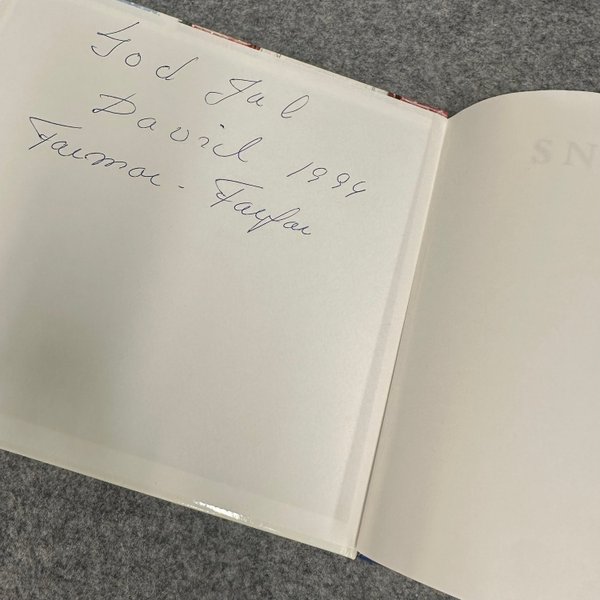 God Jul
David 1994
Farmor - Farfar
SN